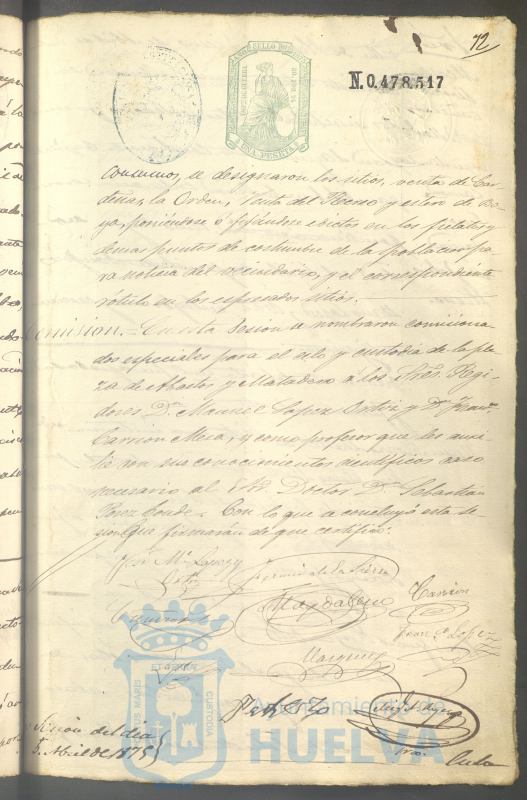 72
SELLO 11º
UNA PESETA
N.0.478.517
Consumos, se designaron los sitios, venta de Car-
denas, la Orden, Venta del Recreo y estero de
poniéndose ó fijándose edictos en los fielatos y
demas puntos de costumbre de la poblacion pa-
ra noticia del vecindario, y el correspondiente
rótulo en los espresados sitios.
Comision.= En esta Sesion se nombraron comisiona-
dos especiales para el celo y custodia de la pla-
za de Abastos y Matadero á los Sres. Regi-
dores Dn. Manuel Lopez Ortiz y Dn. Juan
Carrion Mera, y como profesor que les auxi-
lie con sus conocimientos cientificos caso
necesario al Sor. Doctor Dn. Sebastian
Perez Conde.. Con lo que se concluyó esta se-
sion que firmarán de que certifico.
José Ma.
Fermin de la Sierra
Magdaleno
Carrion
Lopez
Marquez
Sesion del dia
5. Abril de 1875
En la
PORTUS MARIS
ET TERRÆ
CUSTODIA
Ayuntamiento de
HUELVA